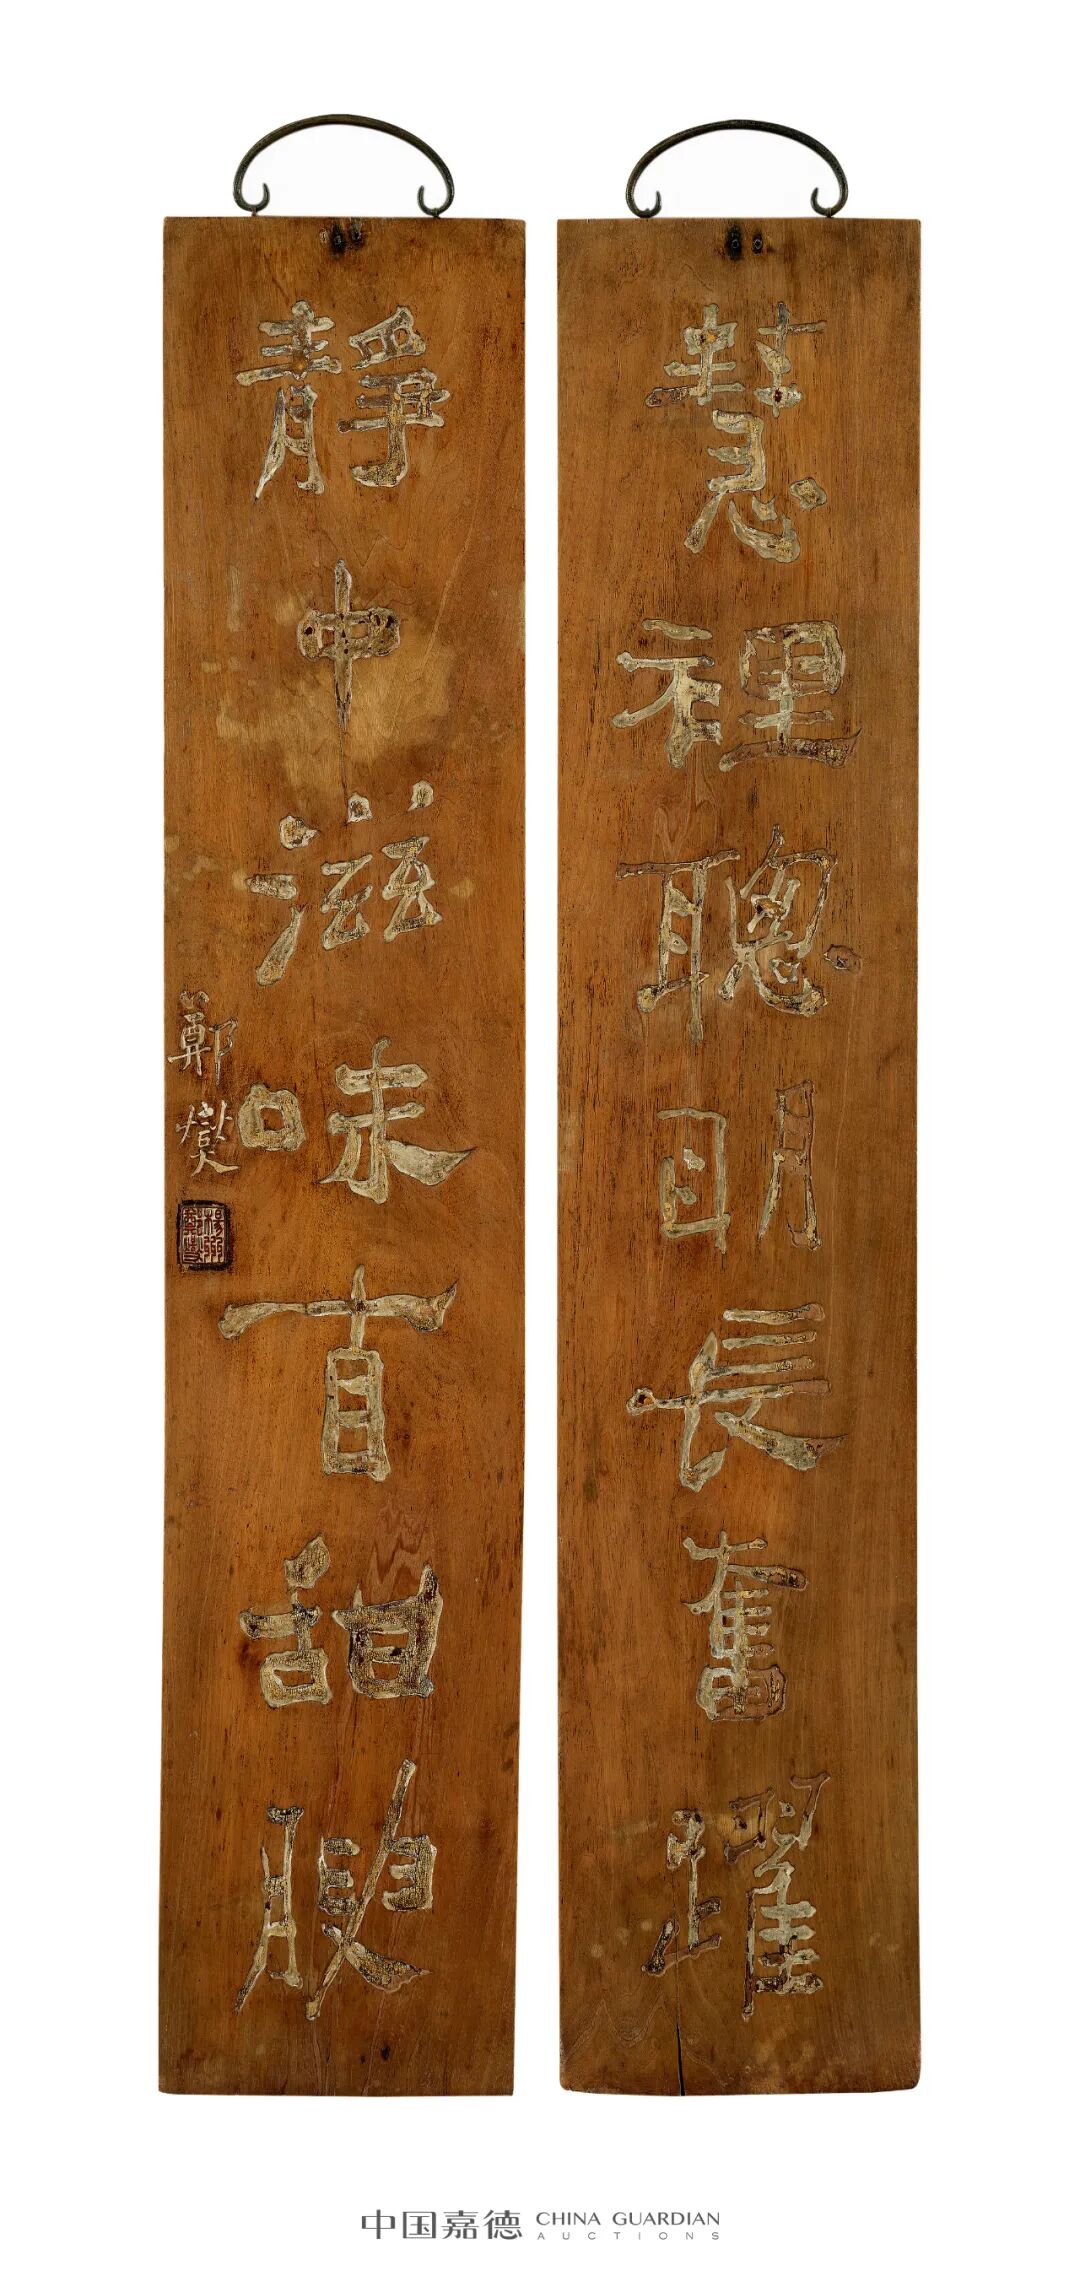 慧裡聰眀長奮躍
靜中滋味自甜腴
鄭燮
中国嘉德 CHINA GUARDIAN
AUCTIONS